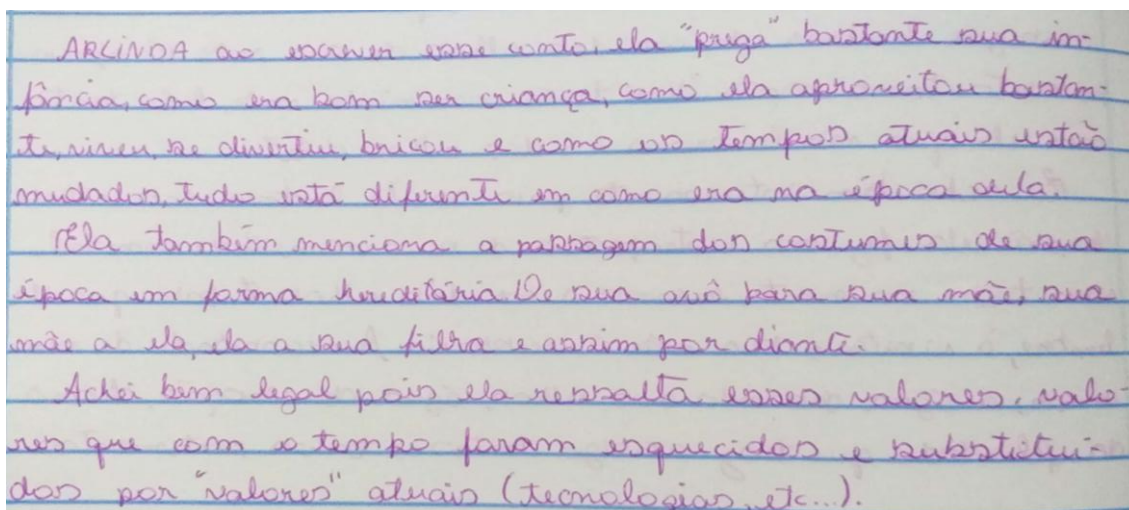 ARLINDA ao escrever esse conto, ela "prega" bastante sua in-
fância, como era bom ser criança, como ela aproveitou bastan-
te, viveu, se divertiu, bricou e como os tempos atuais estão
mudados, tudo está diferente em como era na época dela.
Ela também menciona a passagem dos costumes de sua
época em forma hereditária De sua avó para sua mãe, sua
mãe a ela, ela a sua filha e assim por diante.
Achei bem legal pois ela ressalta esses valores, valo-
res que com o tempo foram esquecidos e substitui-
dos por "valores" atuais (tecnologias, etc...).